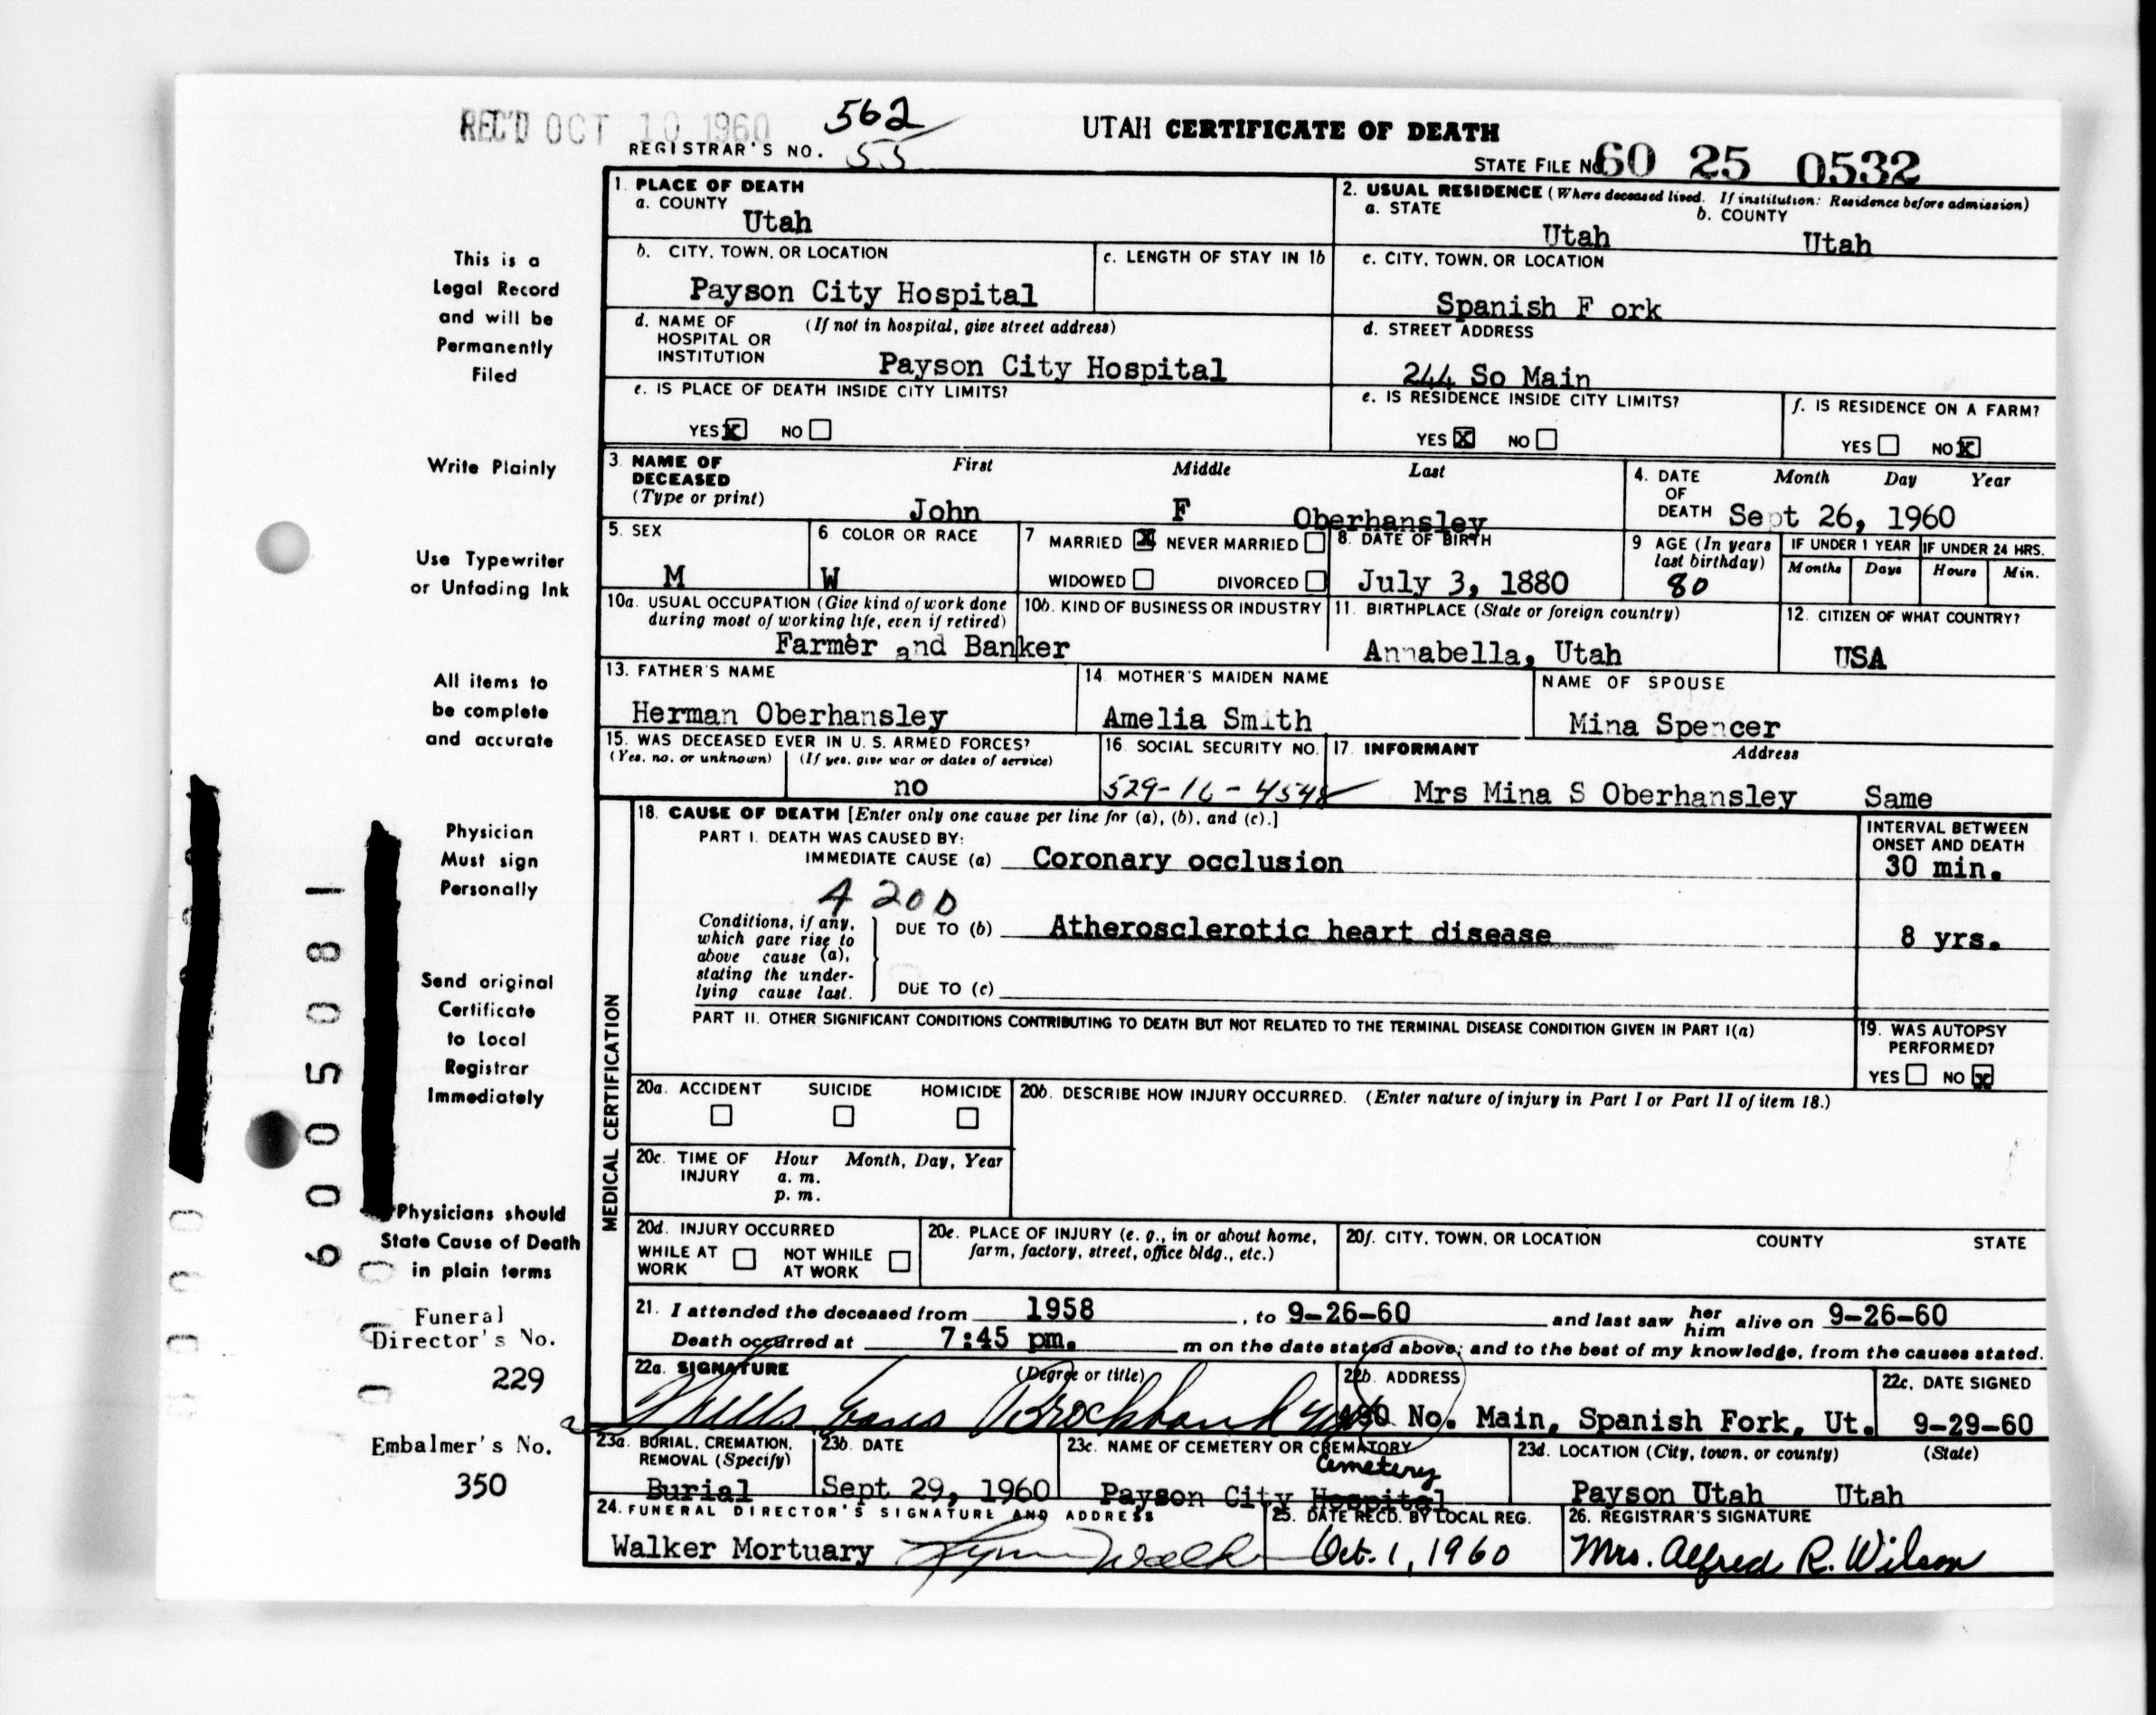 REC'D OCT 10 1960
562
REGISTRAR'S NO. 55
UTAH CERTIFICATE OF DEATH
STATE FILE No 60 25 0532
1. PLACE OF DEATH
a. COUNTY
Utah
2. USUAL RESIDENCE (Where deceased lived. If institution: Residence before admission)
a. STATE b. COUNTY
Utah Utah
b. CITY, TOWN, OR LOCATION
Payson City Hospital
c. LENGTH OF STAY IN 1b
c. CITY, TOWN, OR LOCATION
Spanish F ork
d. NAME OF (If not in hospital, give street address)
HOSPITAL OR
INSTITUTION
Payson City Hospital
d. STREET ADDRESS
244 So Main
e. IS PLACE OF DEATH INSIDE CITY LIMITS?
YES X NO
e. IS RESIDENCE INSIDE CITY LIMITS?
YES X NO
f. IS RESIDENCE ON A FARM?
YES NO X
3. NAME OF DECEASED
(Type or print)
First Middle Last
John F Oberhansley
4. DATE OF DEATH
Month Day Year
Sept 26, 1960
5. SEX
M
6. COLOR OR RACE
W
7. MARRIED X NEVER MARRIED
WIDOWED DIVORCED
8. DATE OF BIRTH
July 3, 1880
9 AGE (In years last birthday)
80
IF UNDER 1 YEAR IF UNDER 24 HRS.
Months Days Hours Min.
10a. USUAL OCCUPATION (Give kind of work done
during most of working life, even if retired)
Farmer and Banker
10b. KIND OF BUSINESS OR INDUSTRY
11. BIRTHPLACE (State or foreign country)
Annabella, Utah
12. CITIZEN OF WHAT COUNTRY?
USA
13. FATHER'S NAME
Herman Oberhansley
14. MOTHER'S MAIDEN NAME
Amelia Smith
NAME OF SPOUSE
Mina Spencer
15. WAS DECEASED EVER IN U. S. ARMED FORCES?
(Yes, no, or unknown) (If yes, give war or dates of service)
no
16. SOCIAL SECURITY NO.
529-16-4548
17. INFORMANT Address
Mrs Mina S Oberhansley Same
MEDICAL CERTIFICATION
18. CAUSE OF DEATH [Enter only one cause per line for (a), (b), and (c).]
PART I. DEATH WAS CAUSED BY:
IMMEDIATE CAUSE (a) Coronary occlusion
INTERVAL BETWEEN
ONSET AND DEATH
30 min.
4 20 0
Conditions, if any,
which gave rise to
above cause (a),
stating the under-
lying cause last.
DUE TO (b) Atherosclerotic heart disease
8 yrs.
DUE TO (c)
PART II. OTHER SIGNIFICANT CONDITIONS CONTRIBUTING TO DEATH BUT NOT RELATED TO THE TERMINAL DISEASE CONDITION GIVEN IN PART I(a)
19. WAS AUTOPSY
PERFORMED?
YES NO X
20a. ACCIDENT SUICIDE HOMICIDE
20b. DESCRIBE HOW INJURY OCCURRED. (Enter nature of injury in Part I or Part II of item 18.)
20c. TIME OF INJURY
Hour Month, Day, Year
a. m.
p. m.
20d. INJURY OCCURRED
WHILE AT WORK NOT WHILE AT WORK
20e. PLACE OF INJURY (e. g., in or about home,
farm, factory, street, office bldg., etc.)
20f. CITY, TOWN, OR LOCATION COUNTY STATE
21. I attended the deceased from 1958, to 9-26-60 and last saw her him alive on 9-26-60
Death occurred at 7:45 pm. m on the date stated above; and to the best of my knowledge, from the causes stated.
22a. SIGNATURE (Degree or title)
Brockbank
22b. ADDRESS
No. Main, Spanish Fork, Ut.
22c. DATE SIGNED
9-29-60
23a. BURIAL, CREMATION,
REMOVAL (Specify)
Burial
23b. DATE
Sept 29, 1960
23c. NAME OF CEMETERY OR CREMATORY
Cemetery
Payson City Hospital
23d. LOCATION (City, town, or county) (State)
Payson Utah Utah
24. FUNERAL DIRECTOR'S SIGNATURE AND ADDRESS
Walker Mortuary Lynn Walker
25. DATE RECD. BY LOCAL REG.
Oct. 1, 1960
26. REGISTRAR'S SIGNATURE
Mrs. Alfred R. Wilson
This is a
Legal Record
and will be
Permanently
Filed
Write Plainly
Use Typewriter
or Unfading Ink
All items to
be complete
and accurate
Physician
Must sign
Personally
Send original
Certificate
to Local
Registrar
Immediately
Physicians should
State Cause of Death
in plain terms
Funeral
Director's No.
229
Embalmer's No.
350
6005081